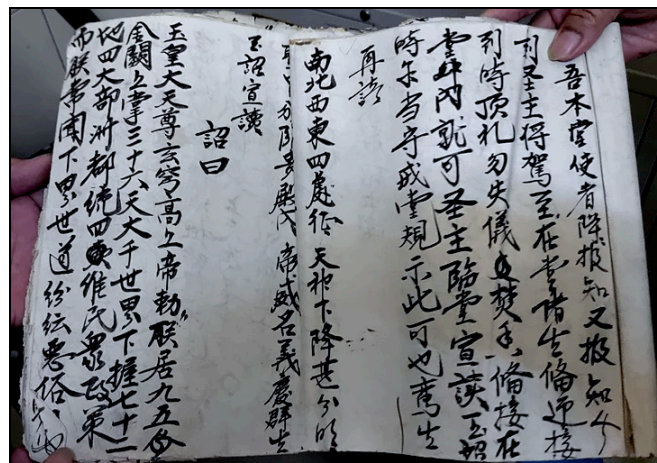 吾本堂使者降報知又報知今
刻圣主将駕至在堂諸生俻迎接
到時頂礼勿失儀焚香俻接在
堂内就可圣主臨堂宣談玉詔
時尔当守戒堂規示此可也鸞生
再請
南北西東四處征天神下降甚分明
分隊貴殿 帝威名義慶群生
玉詔宣讀
詔曰
玉皇大天尊玄穹高上帝勅朕居九五
金闕上掌三十六天大千世界下握七十二
地四大部洲都統四維民衆政策
而朕常聞下界世道紛紜惡俗